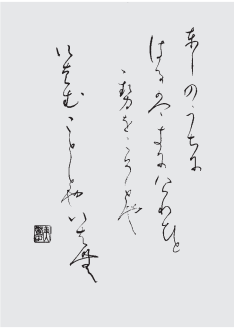 東しのうちに
はるはきにけりひと
ゝ勢をこそとや
いはむことしとやいは無